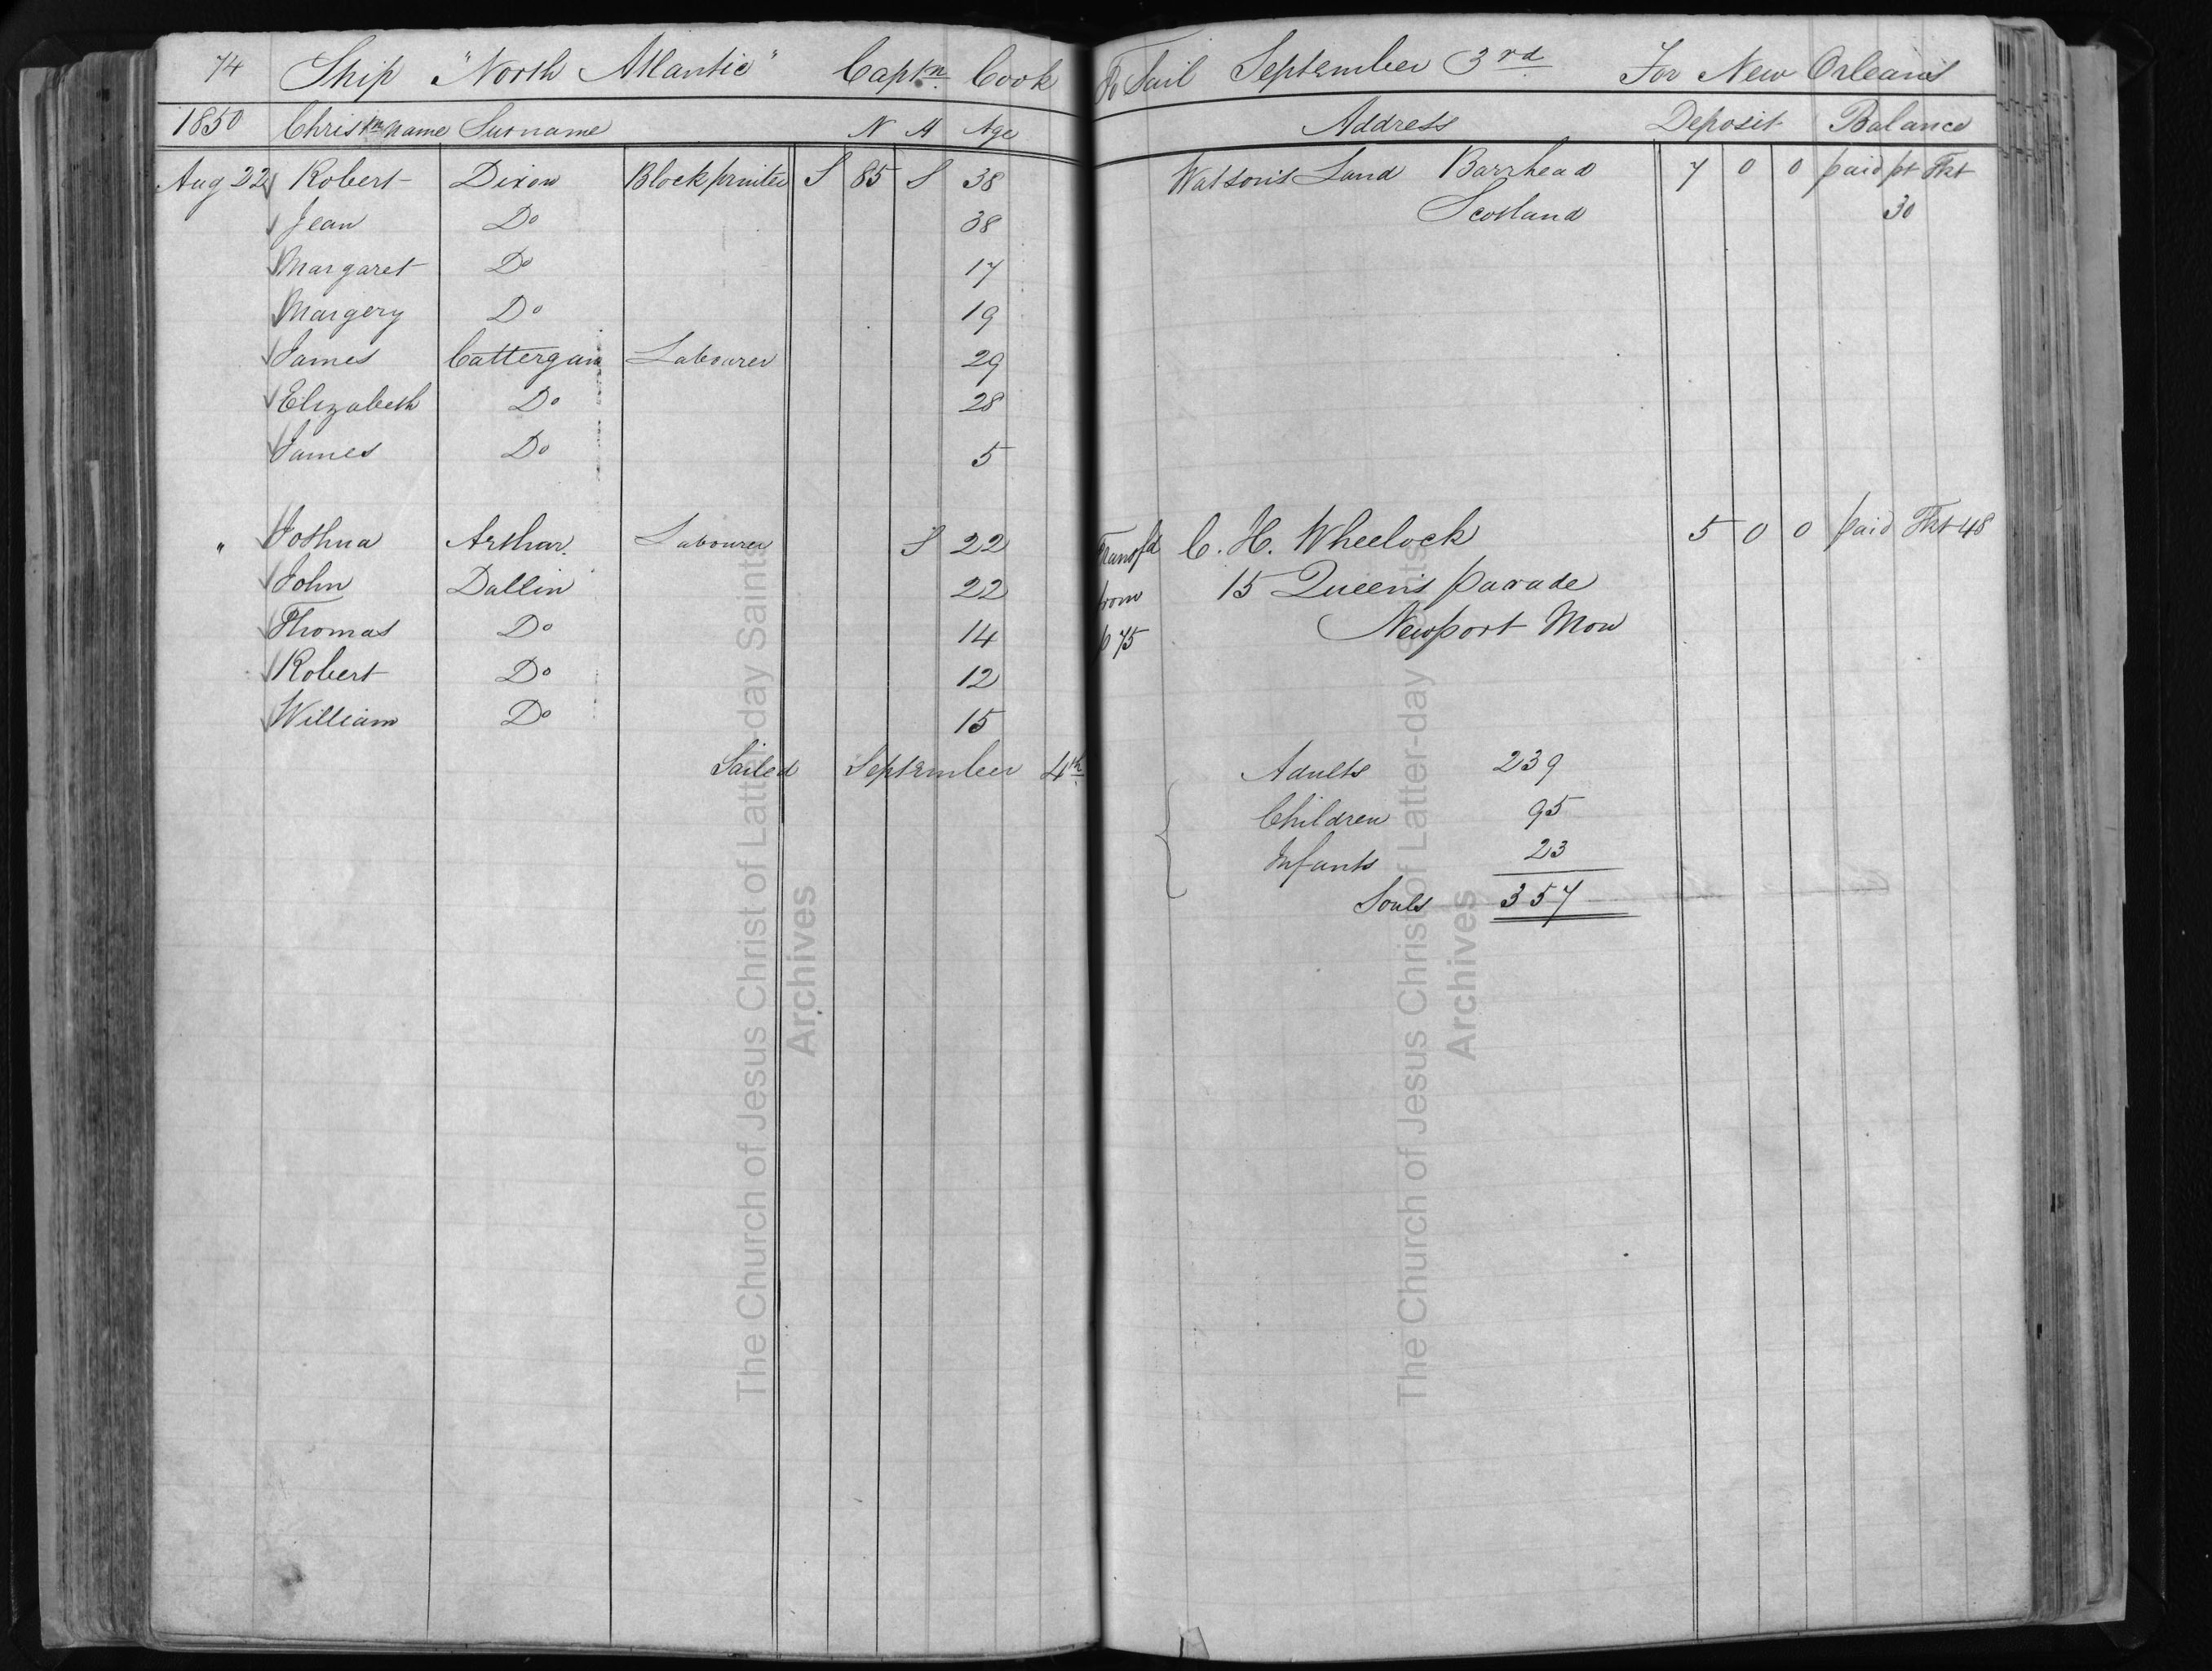 74 Ship "North Atlantic" Captn. Cook To Sail September 3rd For New Orleans
1850 Christn Name Surname N A Age Address Deposit Balance
Aug 22 Robert Dixon Block printer S 85 S 38 Watson's Land Barrhead 7 0 0 paid pr Tkt
Jean Do 38 Scotland 30
Margaret Do 17
Margery Do 19
James Cattergam Labourer 29
Elizabeth Do 28
James Do 5
" Joshua Arthur. Labourer S 22 Transfd C. H. Wheelock 5 0 0 paid Tkt 48
John Dallin 22 from 15 Queen's parade
Thomas Do 14 p 75 Newport Mon
Robert Do 12
William Do 15
Sailed September 4th Adults 239
Children 95
Infants 23
Souls 357
The Church of Jesus Christ of Latter-day Saints
Archives
The Church of Jesus Christ of Latter-day Saints
Archives